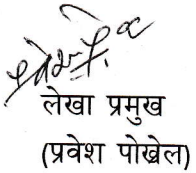 लेखा प्रमुख
(प्रवेश पोख्रेल)